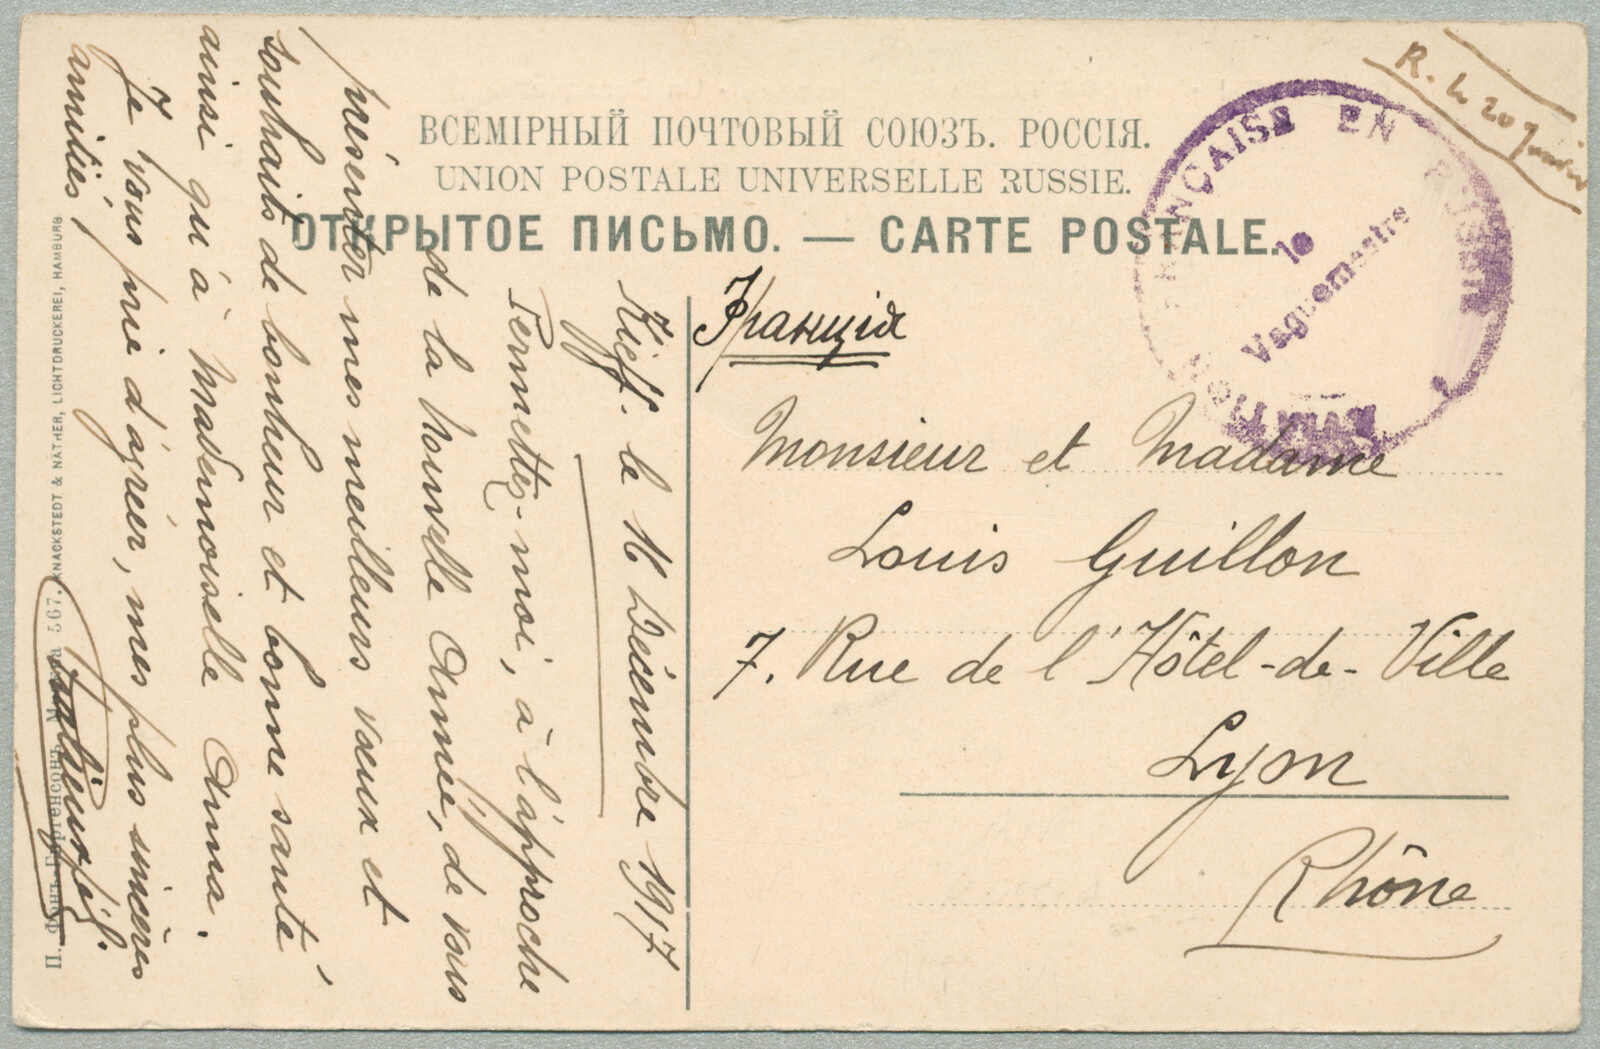 ВСЕМІРНЫЙ ПОЧТОВЫЙ СОЮЗЪ. РОССІЯ.
UNION POSTALE UNIVERSELLE RUSSIE.
ОТКРЫТОЕ ПИСЬМО. — CARTE POSTALE.
R. le 20 janvier
FRANÇAISE EN RUSSIE
le
Vaguemestre
Франція
Monsieur et Madame
Louis Guillon
7. Rue de l'Hôtel-de-Ville
Lyon
Rhône
Kieff. le 16 Décembre 1917
Permettez-moi, à l'approche
de la nouvelle Année, de vous
présenter mes meilleurs vœux et
souhaits de bonheur et bonne santé
ainsi qu'à Mademoiselle Anna.
Je vous prie d'agréer, mes plus sincères
amitiés
П. Фонъ-Гиргенсонъ, Москва 567. KNACKSTEDT & NÄTHER, LICHTDRUCKEREI, HAMBURG